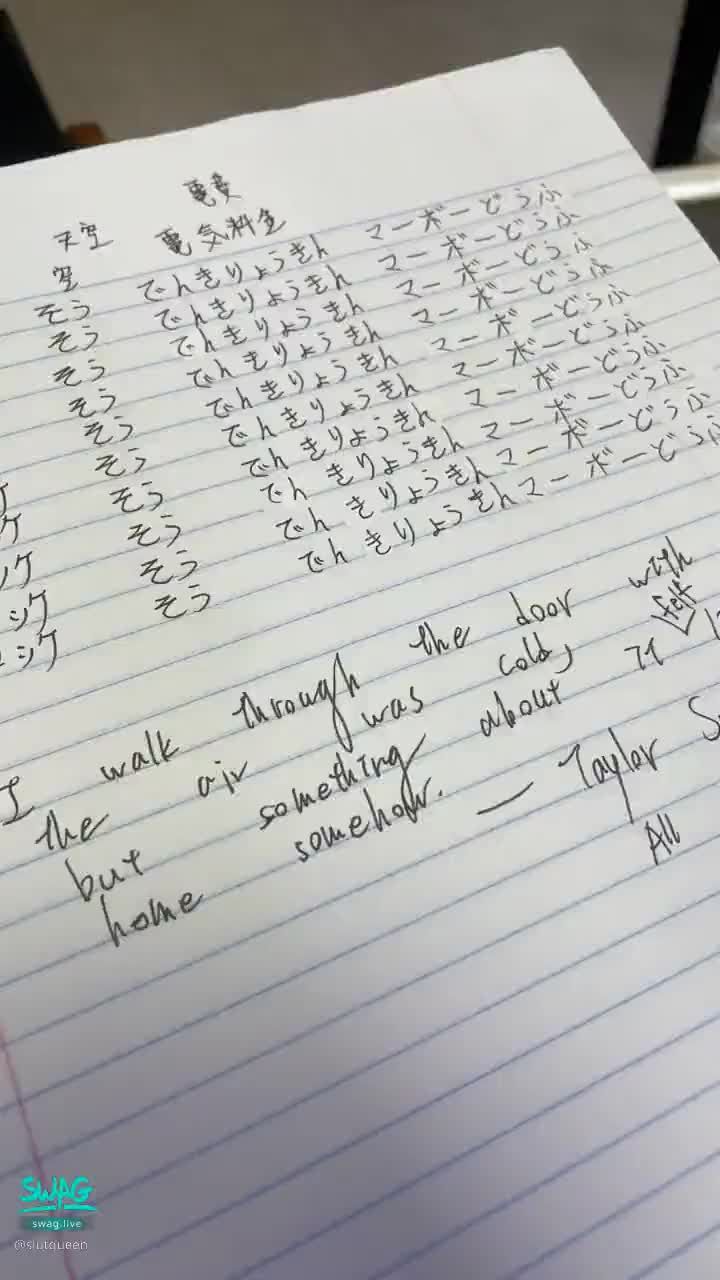 電費
天空 電気料金
空
そう でんきりょうきん マーボーどうふ
そう でんきりょうきん マーボーどうふ
そう でんきりょうきん マーボーどうふ
そう でんきりょうきん マーボーどうふ
そう でんきりょうきん マーボーどうふ
そう でんきりょうきん マーボーどうふ
そう でんきりょうきん マーボーどうふ
そう でんきりょうきん マーボーどうふ
そう でんきりょうきん マーボーどうふ
そう でんきりょうきん マーボーどうふ
I walk through the door with
the air was cold,
but something about it felt
home somehow. — Taylor
All
SWAG
swag.live
@slutqueen